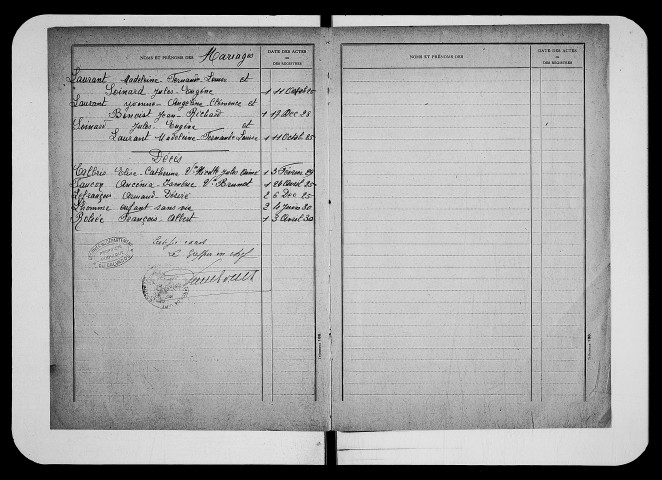 NOMS ET PRÉNOMS DES Mariages DATE DES ACTES OU DES REGISTRES
Laurant Madeleine Fernande Louise et
Soinard Jules Eugène 1 11 Octob 25
Laurant Yvonne Angeline Clémence et
Benoist Jean Richard 1 17 Dec 28
Soinard Jules Eugène et
Laurant Madeleine Fernande Louise 1 11 Octob 25
Décès
Elise Catherine Vve Jules Aimé 1 3 29
Vve 1 26 Avril 25
Lefrançois Armand Désiré 2 6 Dec 25
Lhomme enfant sans vie 2 4 Juin 30
François Albert 1 3 Avril 30
Certifié exact
Le Greffier en chef
NOMS ET PRÉNOMS DES DATE DES ACTES OU DES REGISTRES